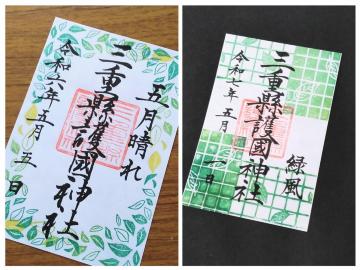 五月晴れ
三重縣護國神社
令和六年五月五日
緑風
三重縣護國神社
令和七年五月一日